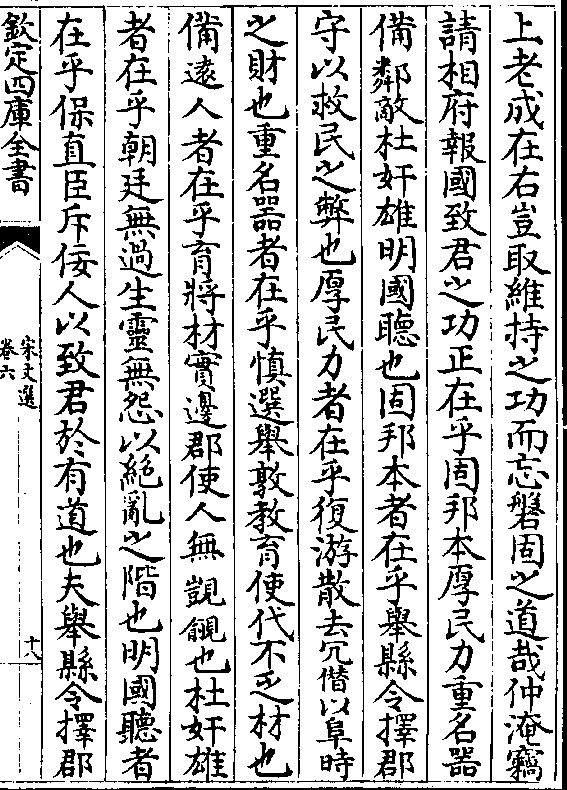 上老成在右豈取維持之功而忘磐固之道哉仲淹竊
請相府報國致君之功正在乎固邦本厚民力重名器
備鄰敵杜奸雄明國聽也固邦本者在乎舉縣令擇郡
守以救民之弊也厚民力者在乎復游散去冗僭以阜時
之財也重名器者在乎慎選舉敦教育使代不乏材也
備逺人者在乎育將材實邊郡使人無覬覦也杜奸雄
者在乎朝廷無過生靈無怨以絶亂之階也明國聽者
在乎保直臣斥佞人以致君於有道也夫舉縣令擇郡
欽定四庫全書
宋文選
卷六
十八